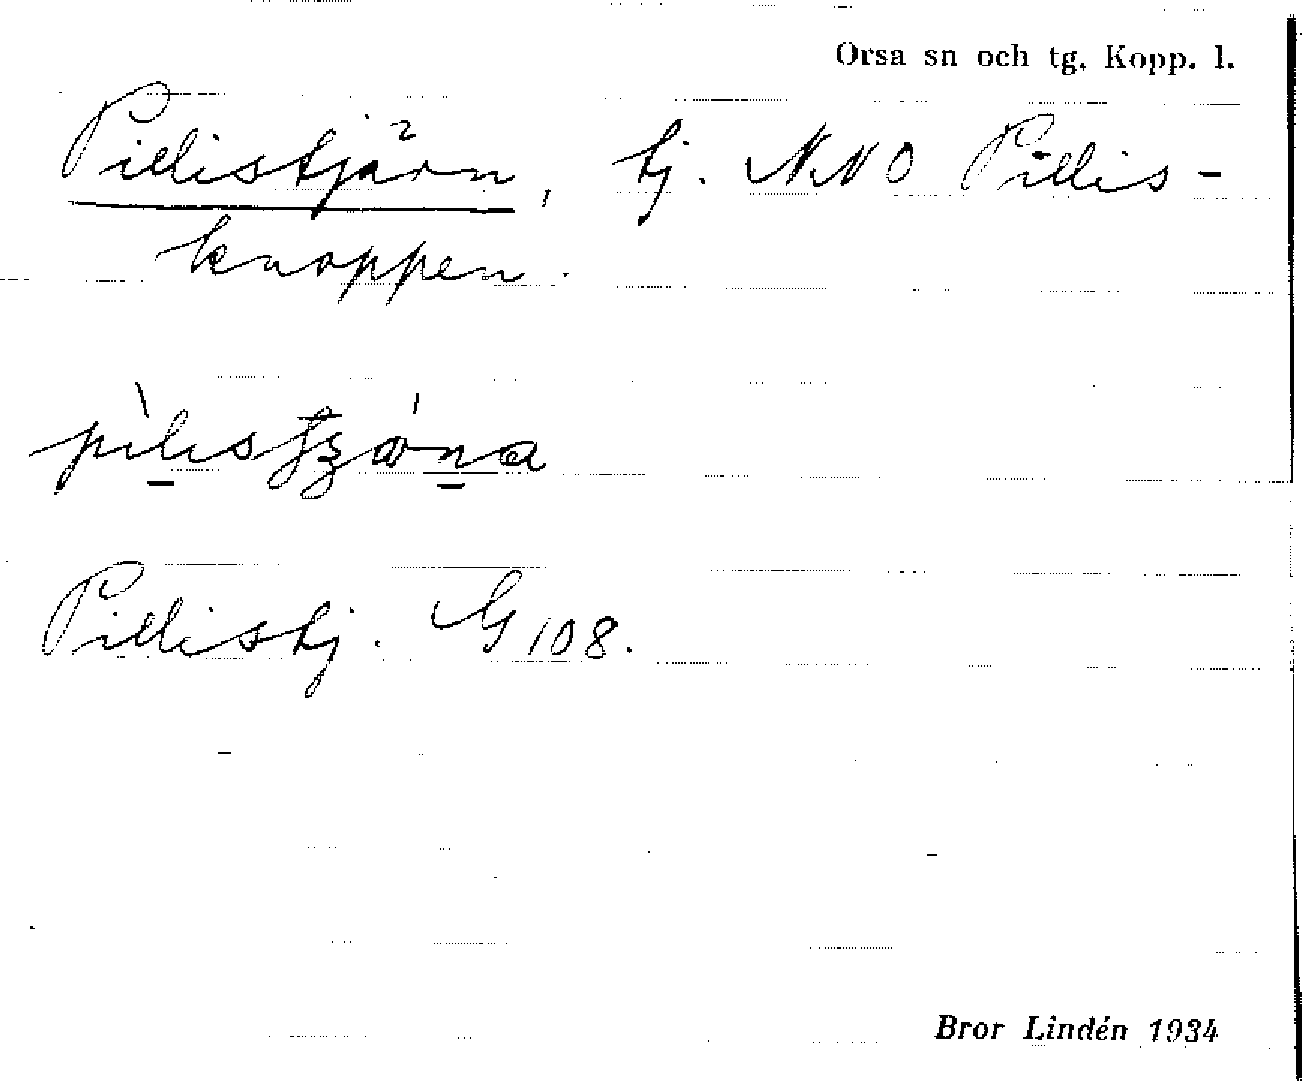 Orsa sn och tg. Kopp. l.
Pillistjärn, tj. NNO Pillis-
knoppen.
Pillistj. G 108.
Bror Lindén 1934